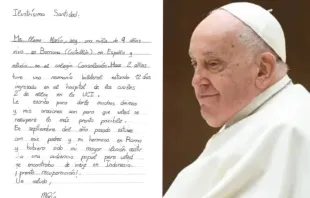 Ilustrísima Santidad:
Me llamo María, soy una niña de 9 años
vivo en Barcelona (Cataluña) en España y
estudio en el colegio Consolación. Hace 2 años
tuve una neumonía bilateral estando 12 días
ingresada en el hospital de los cuales
2 de ellos en la UCI.
Le escribo para darle muchos ánimos
y mis oraciones son para que usted se
recupere lo más pronto posible.
En septiembre del año pasado estuve
con mis padres y mi hermana en Roma
y hubiera sido mi mayor ilusión asistir
a una audiencia papal pero usted
se encontraba de viaje en Indonesia.
¡Pronta recuperación!
Un saludo,
María